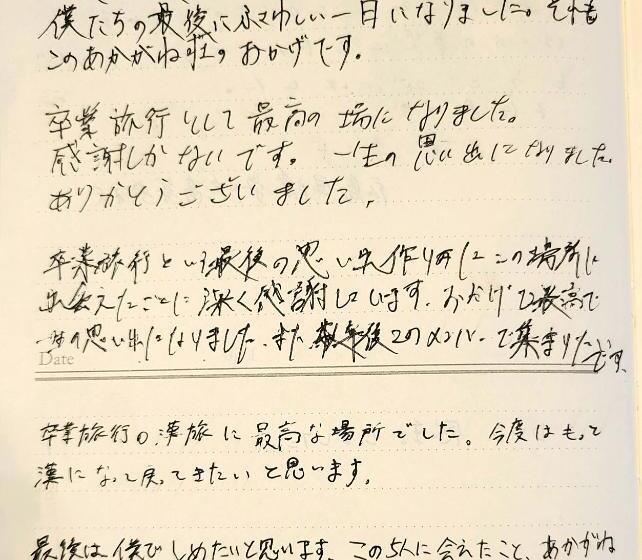 僕たちの最後にふさわしい一日になりました。
このあかがね荘のおかげです。
卒業旅行として最高の場になりました。
感謝しかないです。一生の思い出になりました。
ありがとうございました。
卒業旅行という最後の思い出作りの この場所に
出会えたことに深く感謝しています。おかげで最高で
一生の思い出になりました。また 後このメンバーで集まりたいです。
Date
卒業旅行の漢旅に最高な場所でした。今度はもって
漢になって戻ってきたいと思います。
最後は僕でしめたいと思います。この5人に会えたこと、あかがね